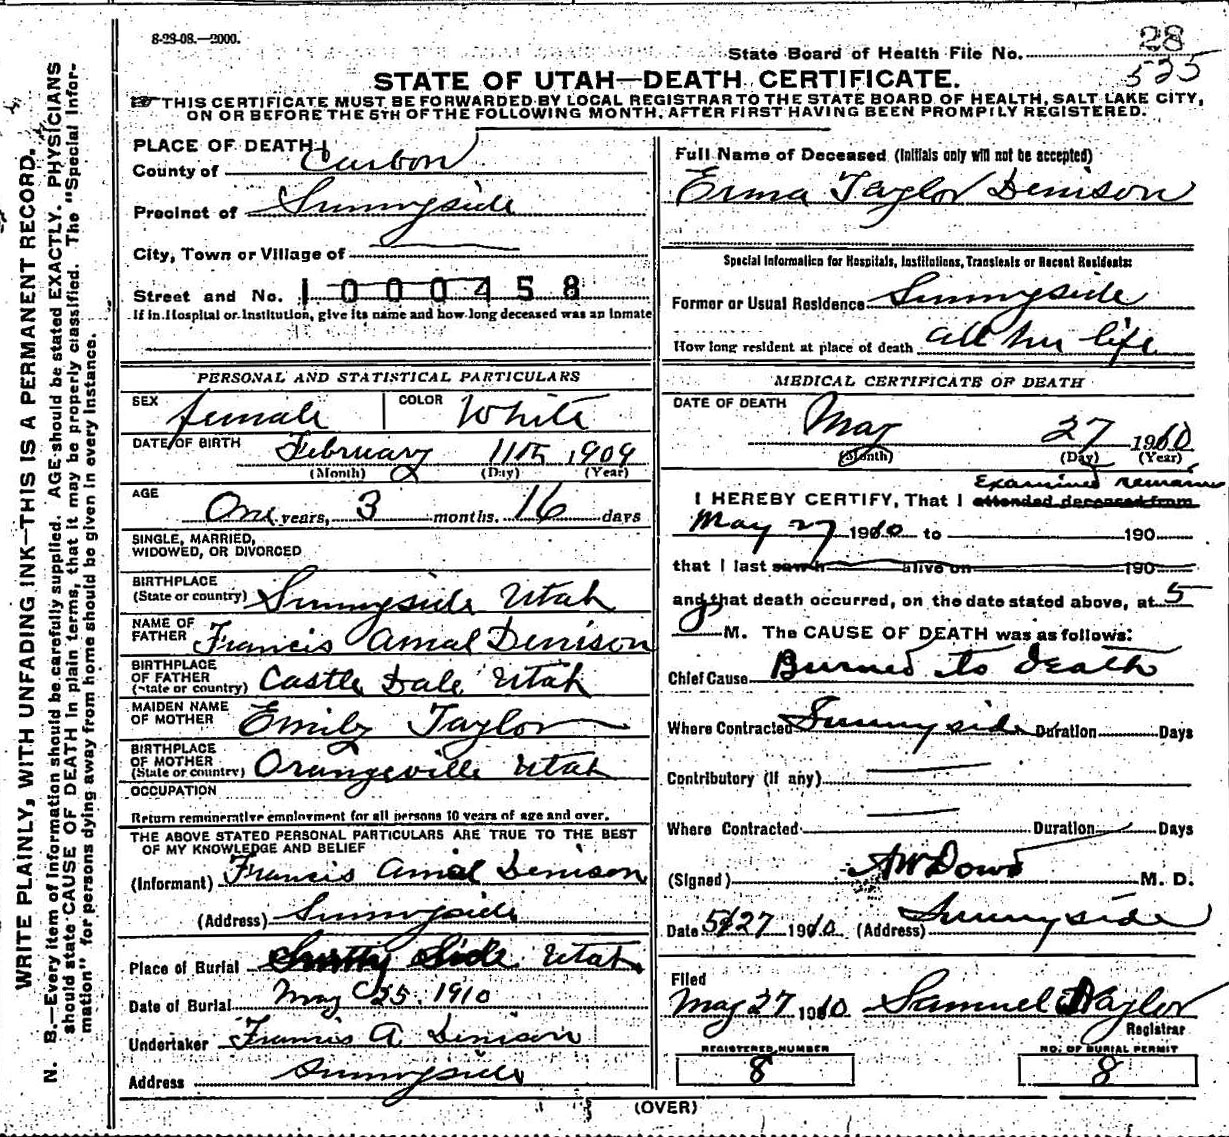 8-28-08.—2000.
State Board of Health File No. 28
525
STATE OF UTAH—DEATH CERTIFICATE.
THIS CERTIFICATE MUST BE FORWARDED BY LOCAL REGISTRAR TO THE STATE BOARD OF HEALTH, SALT LAKE CITY,
ON OR BEFORE THE 5TH OF THE FOLLOWING MONTH, AFTER FIRST HAVING BEEN PROMPILY REGISTERED.
WRITE PLAINLY, WITH UNFADING INK—THIS IS A PERMANENT RECORD.
N. B.—Every item of information should be carefully supplied. AGE should be stated EXACTLY. PHYSICIANS
should state CAUSE OF DEATH in plain terms, that it may be properly classified. The "Special Infor-
mation" for persons dying away from home should be given in every instance.
PLACE OF DEATH
County of Carbon
Precinct of Sunnyside
City, Town or Village of
Street and No. 1000458
If in Hospital or Institution, give its name and how long deceased was an inmate
PERSONAL AND STATISTICAL PARTICULARS
SEX female COLOR White
DATE OF BIRTH February 11th 1909
(Month) (Day) (Year)
AGE One years, 3 months. 16 days
SINGLE, MARRIED,
WIDOWED, OR DIVORCED
BIRTHPLACE
(State or country) Sunnyside Utah
NAME OF
FATHER Francis Amal Denison
BIRTHPLACE
OF FATHER
(State or country) Castle Dale Utah
MAIDEN NAME
OF MOTHER Emily Taylor
BIRTHPLACE
OF MOTHER
(State or country) Orangeville Utah
OCCUPATION
Return remunerative employment for all persons 10 years of age and over.
THE ABOVE STATED PERSONAL PARTICULARS ARE TRUE TO THE BEST
OF MY KNOWLEDGE AND BELIEF
(Informant) Francis Amal Denison
(Address) Sunnyside
Place of Burial Side Utah
Date of Burial May 25. 1910
Undertaker Francis A Denison
Address Sunnyside
Full Name of Deceased (Initials only will not be accepted)
Erma Taylor Denison
Special Information for Hospitals, Institutions, Transients or Recent Residents:
Former or Usual Residence Sunnyside
How long resident at place of death all her life
MEDICAL CERTIFICATE OF DEATH
DATE OF DEATH May 27 1910
(Month) (Day) (Year)
Examined remains
I HEREBY CERTIFY, That I attended deceased from
May 27 1910 to 190
that I last saw h alive on 190
and that death occurred, on the date stated above, at 5
P M. The CAUSE OF DEATH was as follows:
Chief Cause Burned to death
Where Contracted Sunnyside Duration Days
Contributory (If any)
Where Contracted Duration Days
(Signed) AW Dowd M. D.
Date 5/27 1910 (Address) Sunnyside
Filed
May 27 1910 Samuel Naylor
Registrar
REGISTERED NUMBER
8
NO. OF BURIAL PERMIT
8
(OVER)